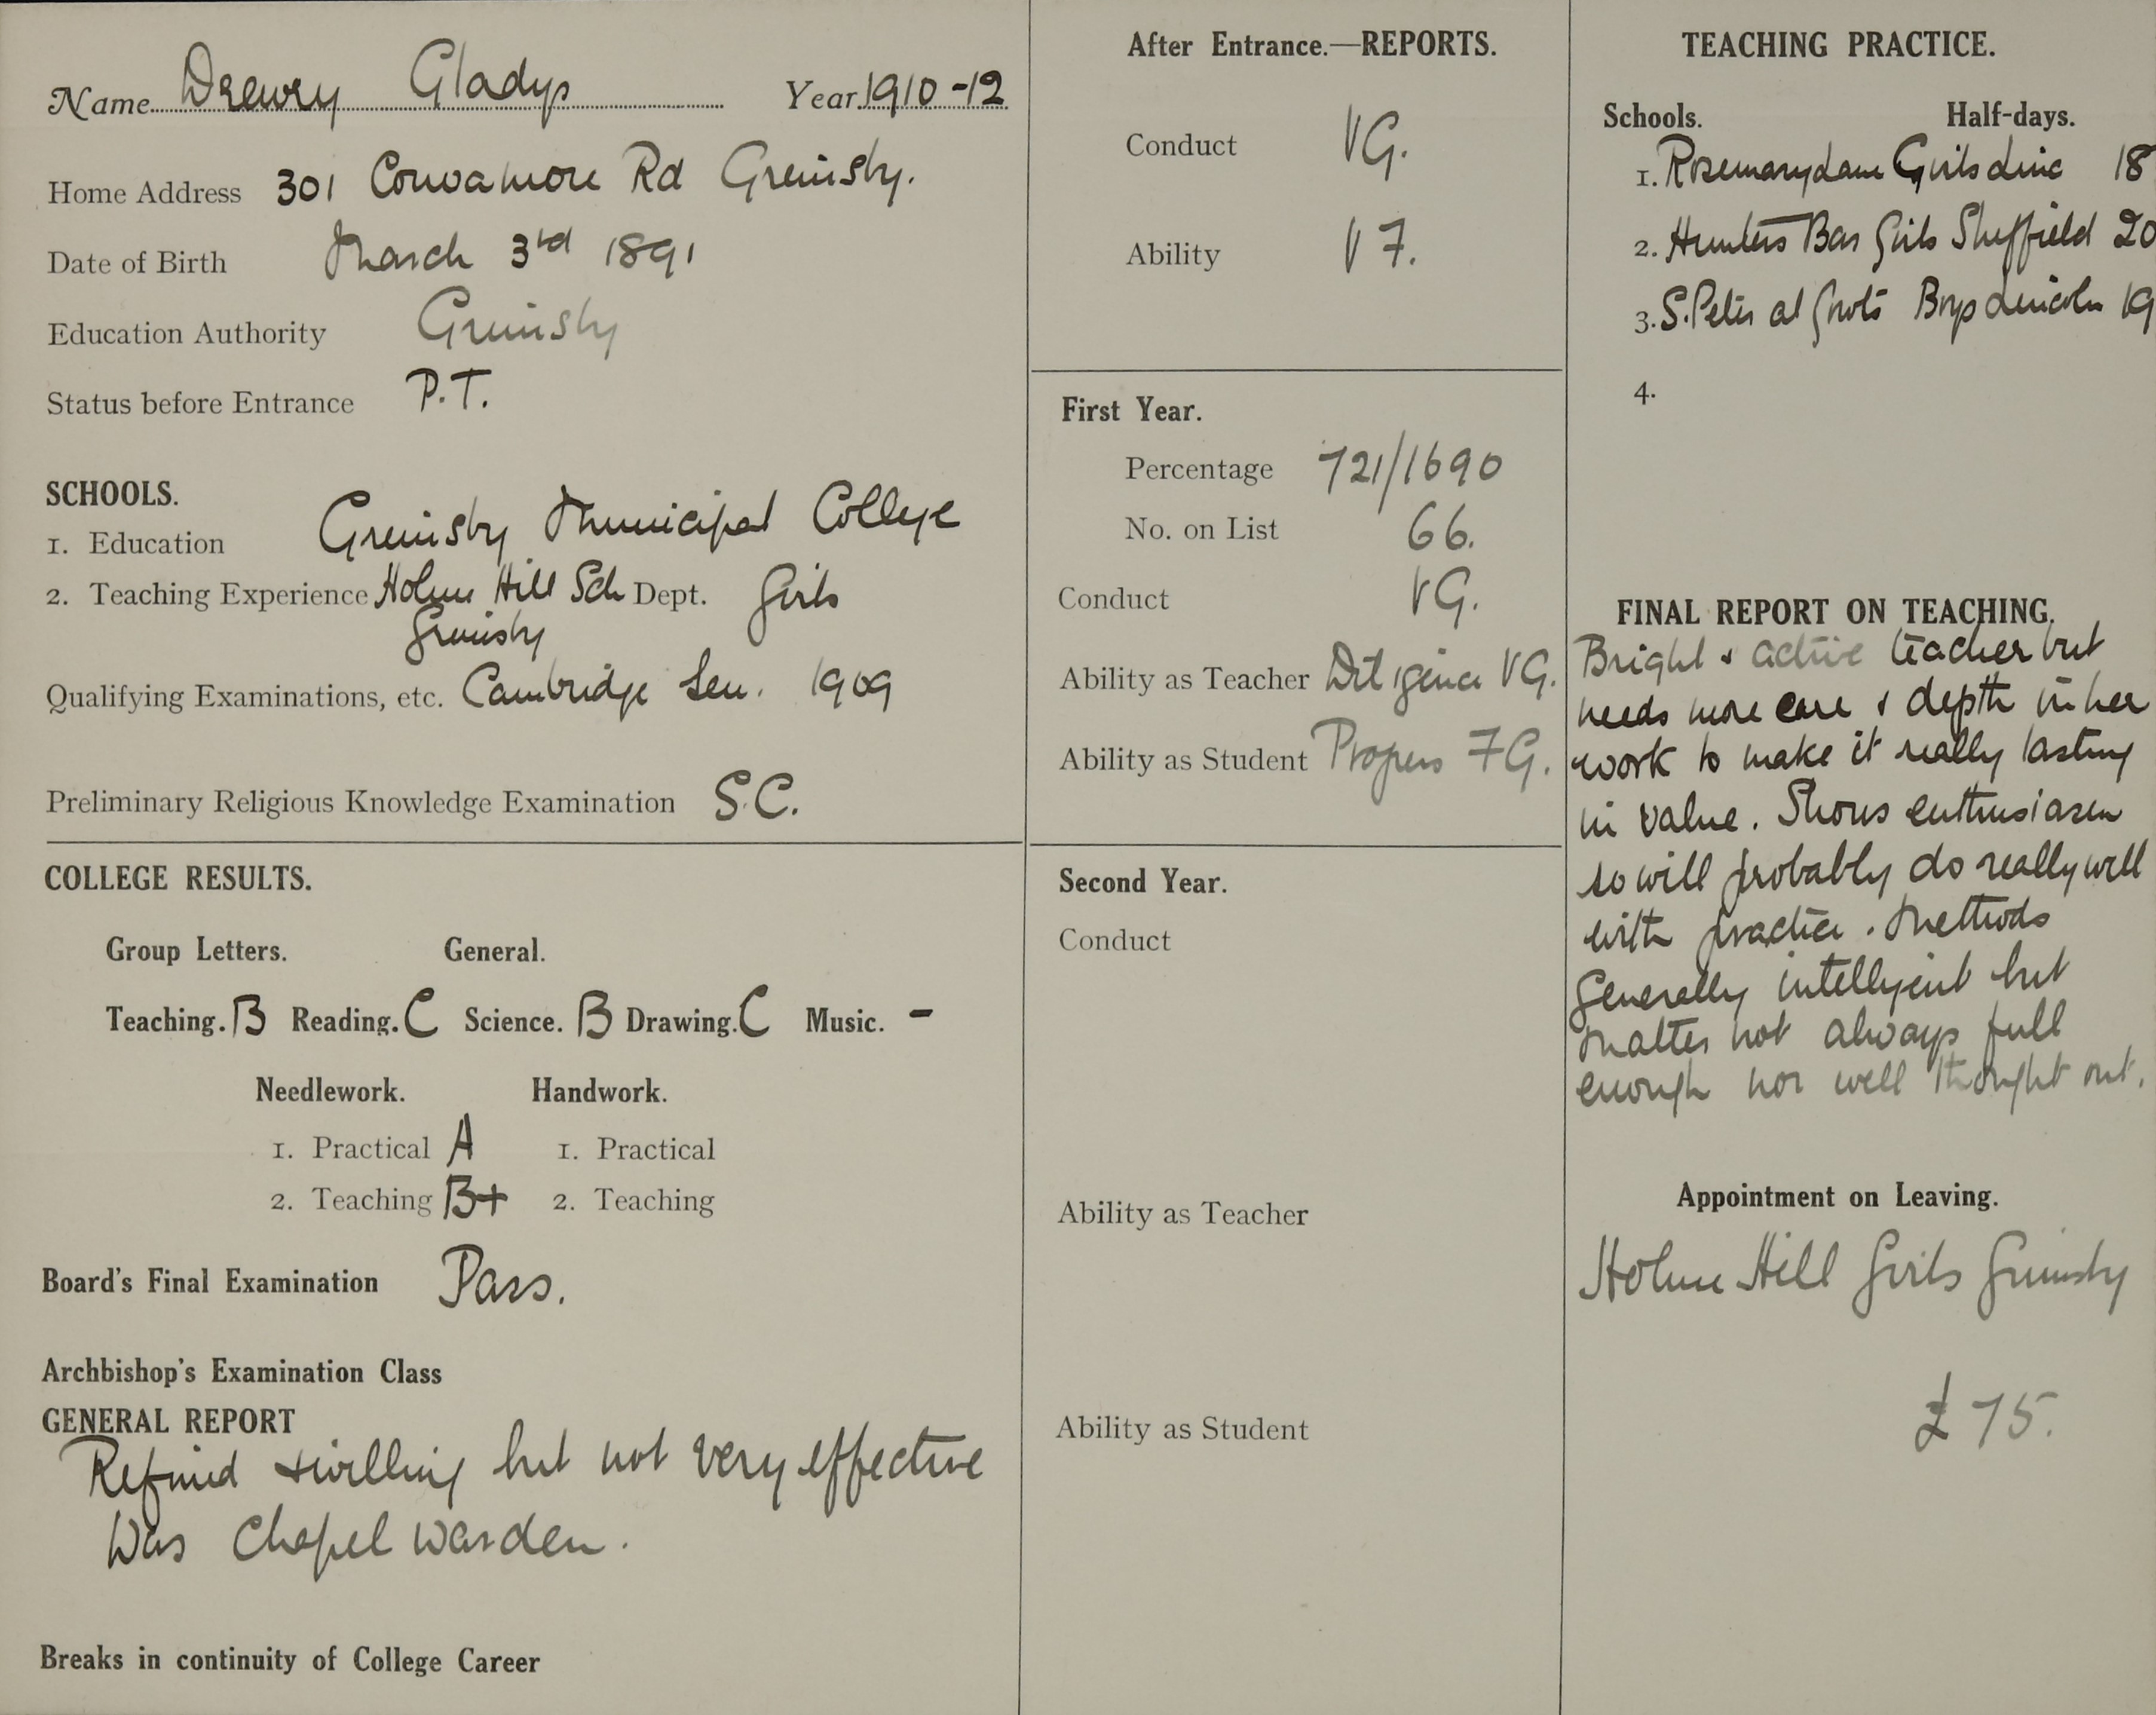 Name Drewry Gladys Year 1910-12
Home Address 301 Convamore Rd Grimsby.
Date of Birth March 3rd 1891
Education Authority Grimsby
Status before Entrance P.T.
SCHOOLS.
1. Education Grimsby Municipal College
2. Teaching Experience Holme Hill Sch Dept. Girls
Grimsby
Qualifying Examinations, etc. Cambridge Sen. 1909
Preliminary Religious Knowledge Examination S.C.
COLLEGE RESULTS.
Group Letters. General.
Teaching. B Reading. C Science. B Drawing. C Music. -
Needlework. Handwork.
1. Practical A 1. Practical
2. Teaching B+ 2. Teaching
Board's Final Examination Pass.
Archbishop's Examination Class
GENERAL REPORT
Refined & willing but not very effective
Was Chapel Warden.
Breaks in continuity of College Career
After Entrance.—REPORTS.
Conduct VG.
Ability V F.
First Year.
Percentage 721/1690
No. on List 66.
Conduct VG.
Ability as Teacher Diligence VG.
Ability as Student Progress FG.
Second Year.
Conduct
Ability as Teacher
Ability as Student
TEACHING PRACTICE.
Schools. Half-days.
1. Rosemary Lane Girls Linc 18
2. Hunters Bar Girls Sheffield 20
3. S. Peter at Gowts Boys Lincoln 19
4.
FINAL REPORT ON TEACHING.
Bright & active teacher but
needs more care & depth in her
work to make it really lasting
in value. Shows enthusiasm
so will probably do really well
with practice. Methods
generally intelligent but
matter not always full
enough nor well thought out.
Appointment on Leaving.
Holme Hill Girls Grimsby
£75.